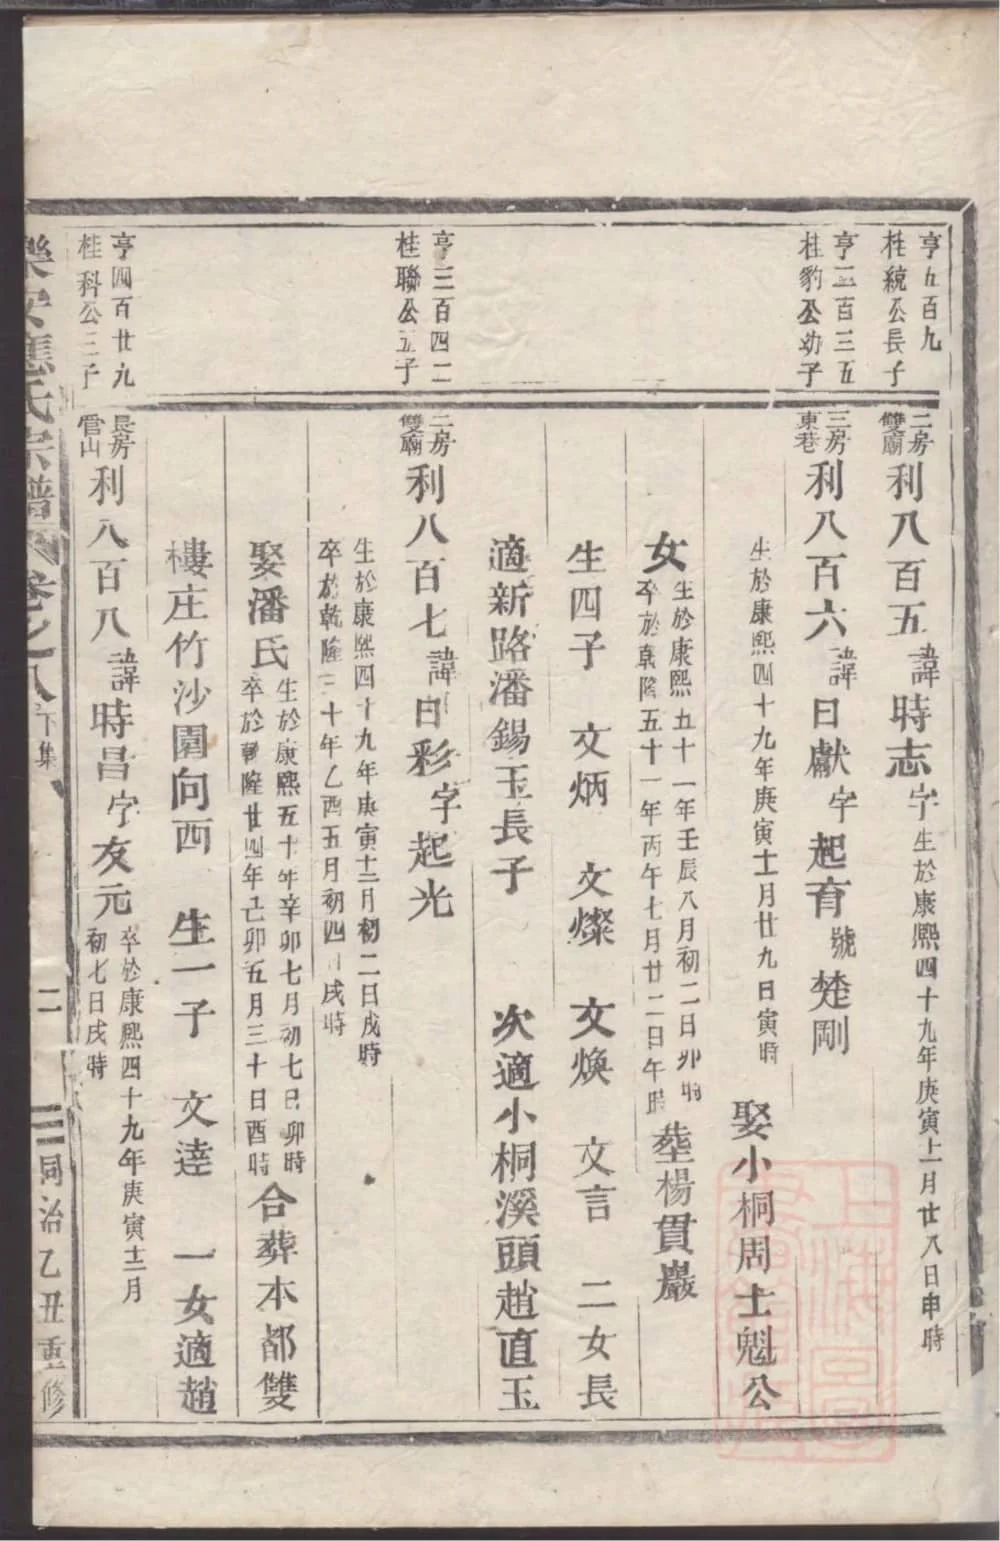 亨五百九
桂統公長子
二房
雙廟
利八百五諱時志字生於康熙四十九年庚寅十一月廿八日申時
亨三百三五
桂豹公幼子
三房
東巷
利八百六諱日獻字起育號楚剛
生於康熙四十九年庚寅十一月廿九日寅時
娶小桐周士魁公
女
生於康熙五十一年壬辰八月初二日卯時
卒於乾隆五十一年丙午七月廿二日午時
塟楊貫巖
生四子 文炳 文燦 文煥 文言 二女長
適新路潘錫玉長子 次適小桐溪頭趙直玉
亨三百四二
桂聯公五子
二房
雙廟
利八百七諱日彩字起光
生於康熙四十九年庚寅十二月初二日戌時
卒於乾隆三十年乙酉五月初四日戌時
娶潘氏
生於康熙五十年辛卯七月初七日卯時
卒於乾隆廿四年己卯五月三十日酉時
合葬本都雙
樓庄竹沙園向西 生一子 文逵 一女適趙
亨四百廿九
桂科公三子
長房
管山
利八百八諱時昌字友元
卒於康熙四十九年庚寅十二月
初七日戌時
樂安應氏宗譜 卷之八 下集 二 同治乙丑重修